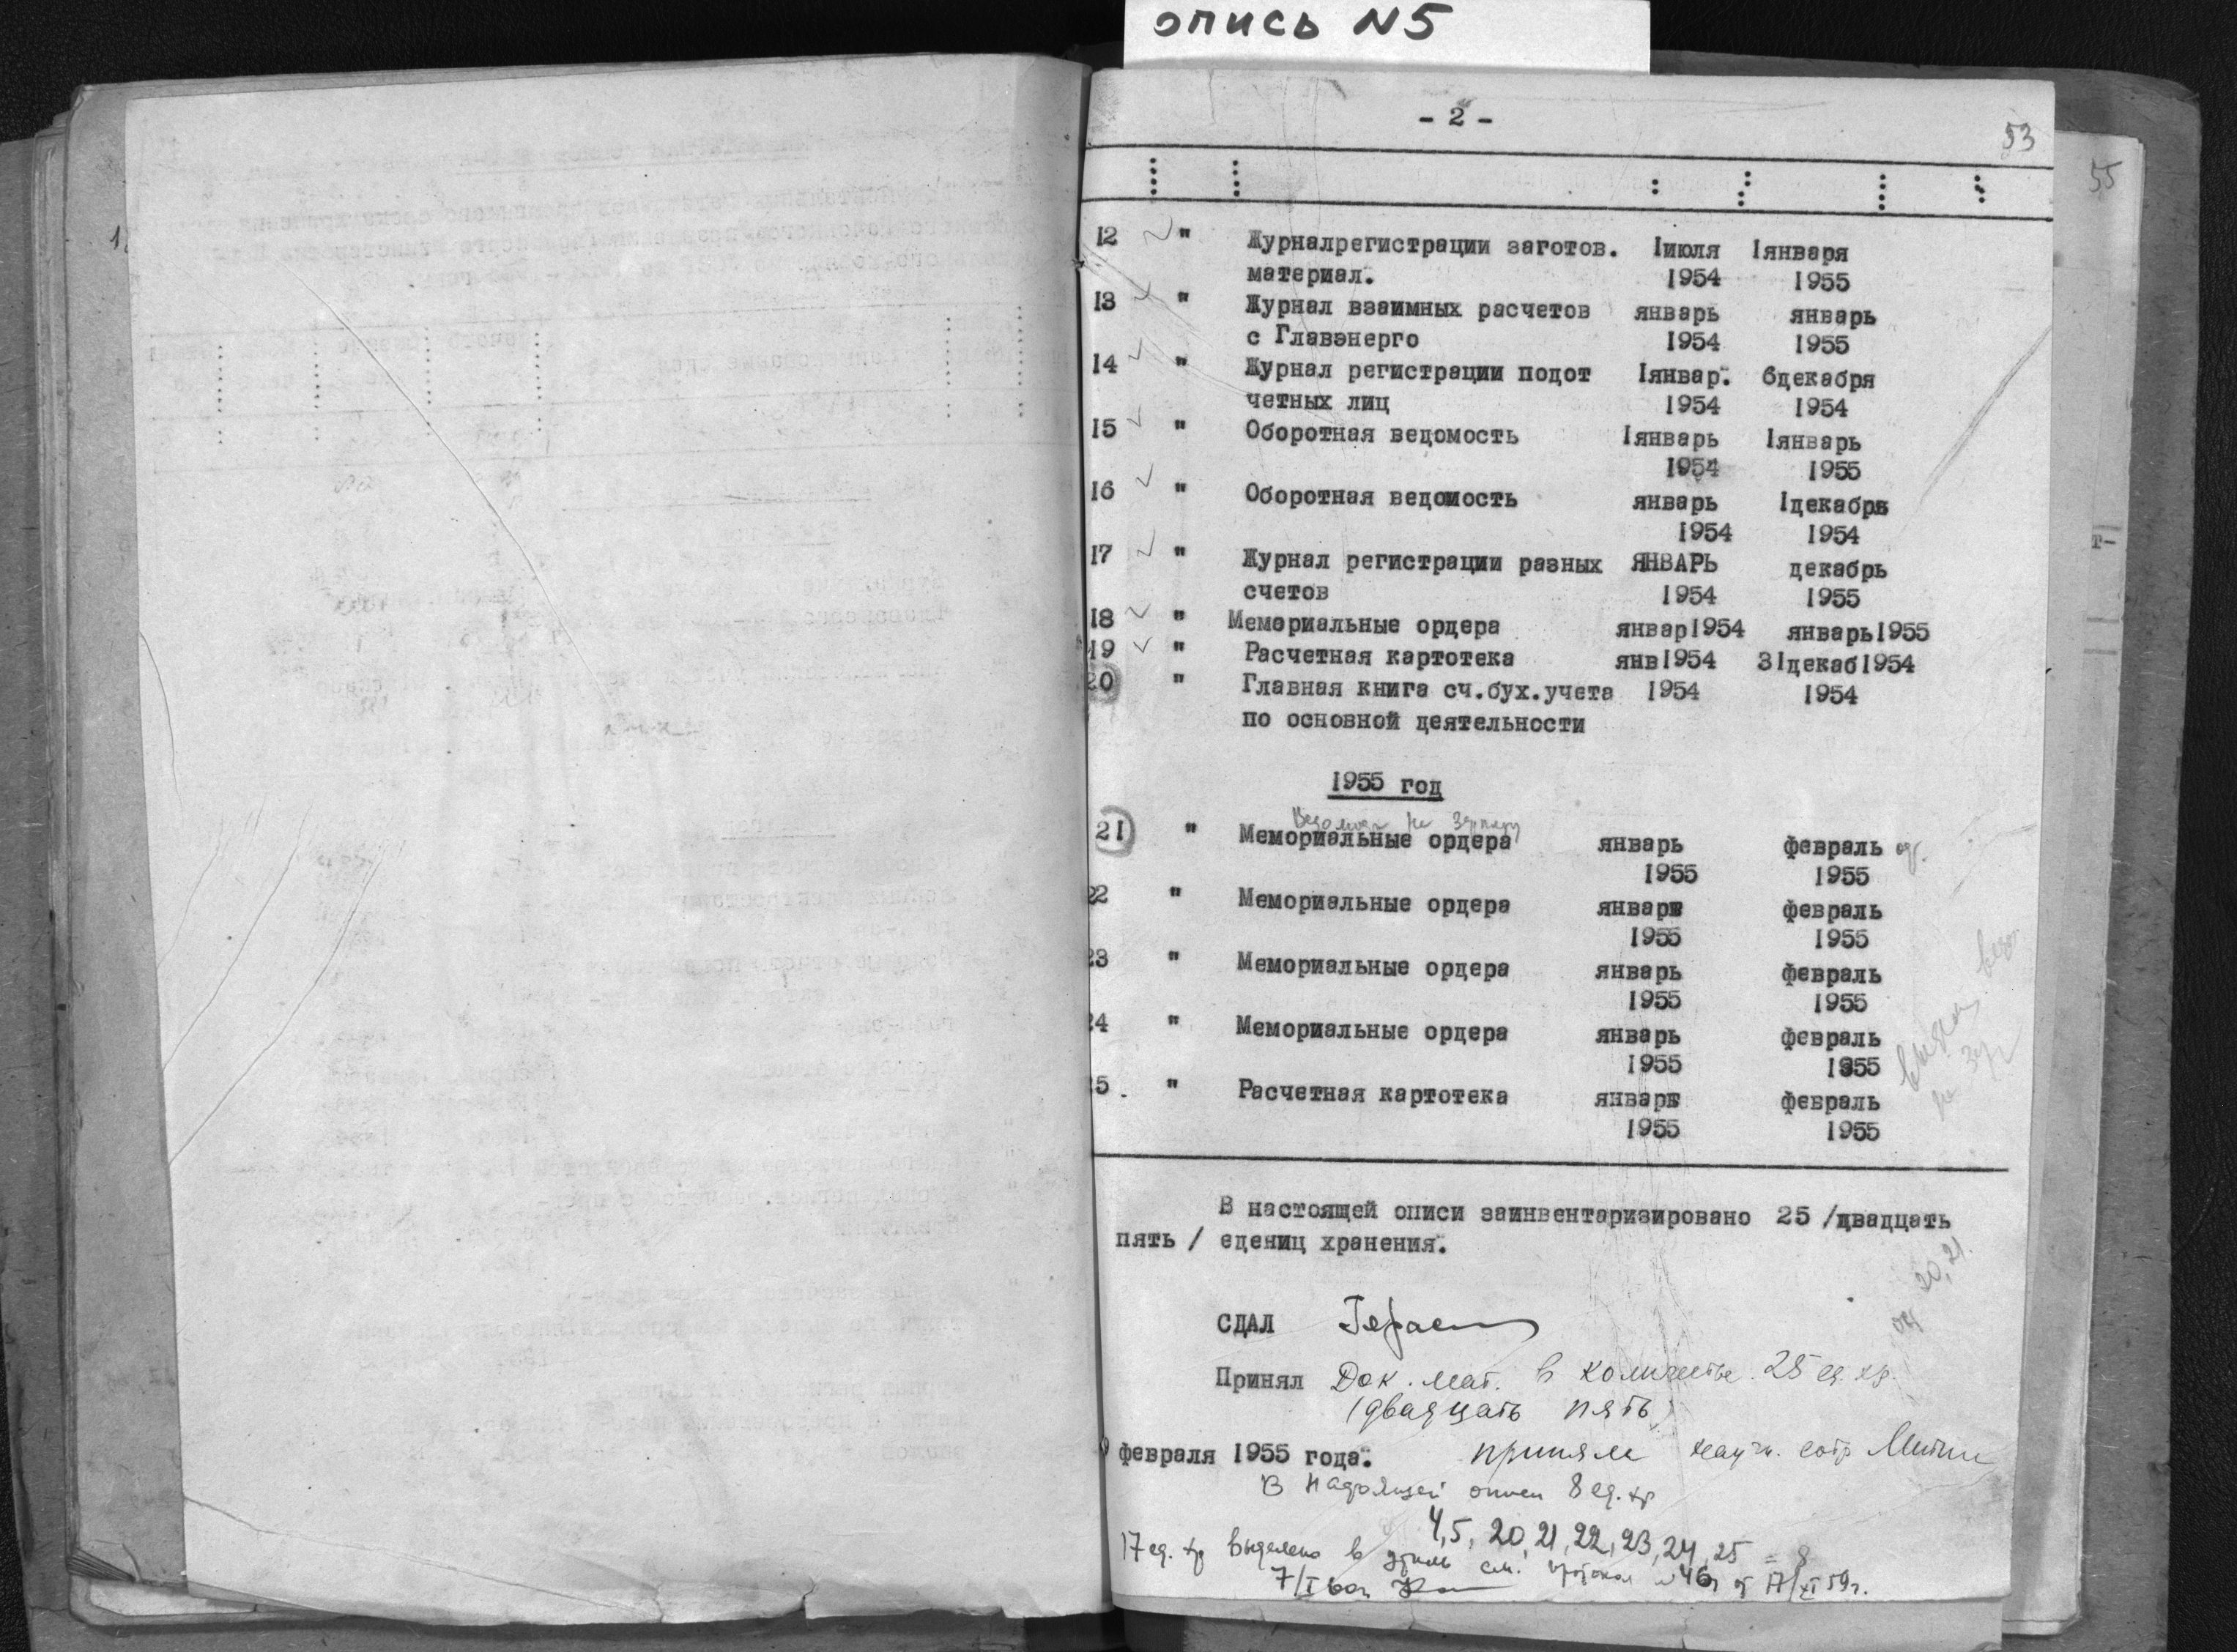 опись N5
- 2 -
53
55
12 " Журналрегистрации заготов. 1июля 1января
материал. 1954 1955
13 " Журнал взаимных расчетов январь январь
с Главэнерго 1954 1955
14 " Журнал регистрации подот 1январ. 6декабря
четных лиц 1954 1954
15 " Оборотная ведомость 1январь 1январь
1954 1955
16 " Оборотная ведомость январь 1декабря
1954 1954
17 " Журнал регистрации разных ЯНВАРЬ декабрь
счетов 1954 1955
18 " Мемориальные ордера январ1954 январь1955
19 " Расчетная картотека янв1954 31декаб1954
20 " Главная книга сч.бух.учета 1954 1954
по основной деятельности
1955 год
21 " Мемориальные ордера январь февраль
1955 1955
22 " Мемориальные ордера январь февраль
1955 1955
23 " Мемориальные ордера январь февраль
1955 1955
24 " Мемориальные ордера январь февраль
1955 1955
25 " Расчетная картотека январь февраль
1955 1955
В настоящей описи заинвентаризировано 25 /двадцать
пять / едениц хранения.
20, 21.
СДАЛ
Принял Док. мат. в количестве 25 ед. хр.
(двадцать пять)
февраля 1955 года. приняла научн. сотр
В настоящей описи 8 ед. хр
4, 5, 20, 21, 22, 23, 24, 25 = 8
17 ед. хр выделено в утиль см. протокол № 46 от 17/XI 59г.
7/I 60г.